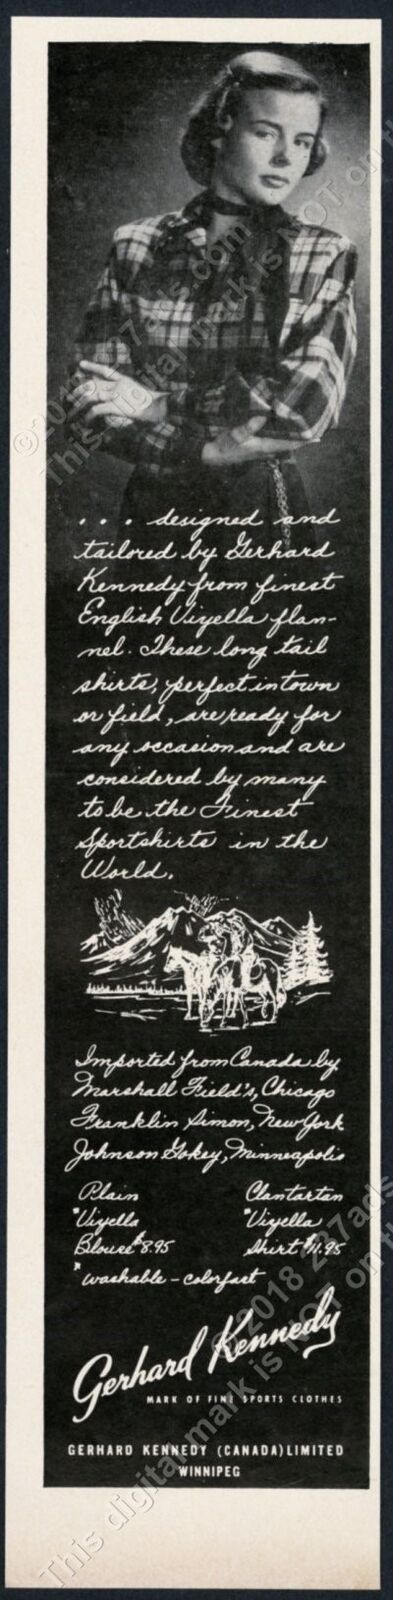 . . . designed and
tailored by Gerhard
Kennedy from finest
English Viyella flan-
nel. These long tail
shirts, perfect in town
or field, are ready for
any occasion and are
considered by many
to be the Finest
Sportshirts in the
World.
Imported from Canada by
Marshall Field's, Chicago
Franklin Simon, New York
Johnson Gokey, Minneapolis
Plain Clantartan
"Viyella "Viyella
Blouse $8.95 Shirt $11.95
"washable - colorfast
Gerhard Kennedy
MARK OF FINE SPORTS CLOTHES
GERHARD KENNEDY (CANADA) LIMITED
WINNIPEG
©2018 237ads.com
This digital mark is NOT on the
©2018 237ads
This digital mark is NOT on the